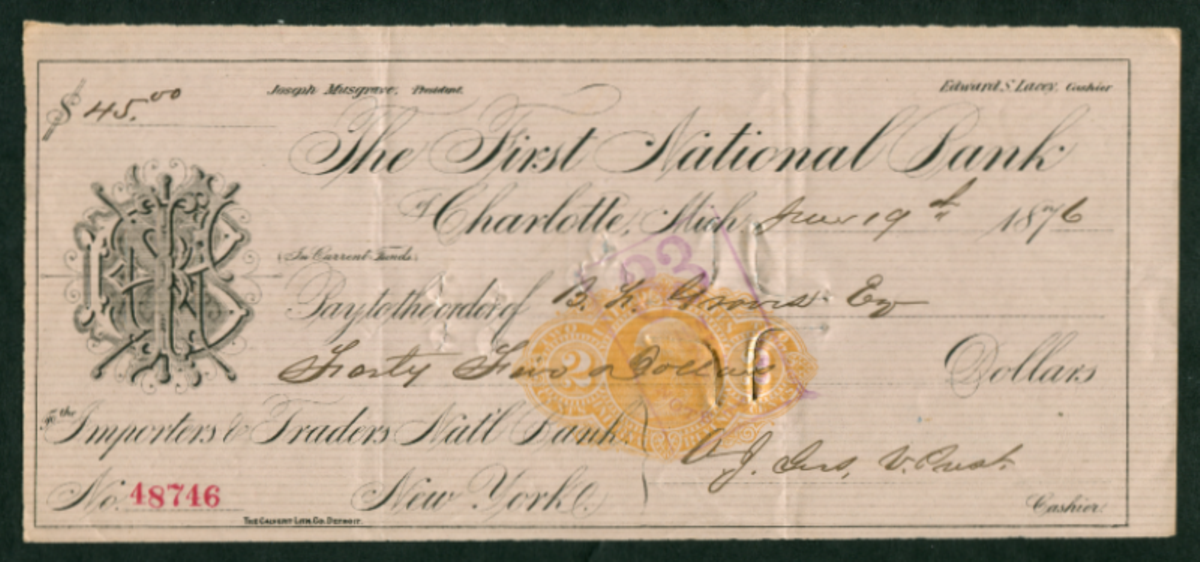 $ 45.00
Joseph Musgrave, President.
Edward S. Lacey, Cashier
The First National Bank
of Charlotte, Mich. 19th 1876
(In Current Funds)
Pay to the order of B. Esq
Forty Five Dollars Dollars
To the Importers & Traders Nat'l Bank,
J. V. Prest.
No. 48746 New York.
Cashier.
THE CALVERT LITH. CO. DETROIT.
23
2